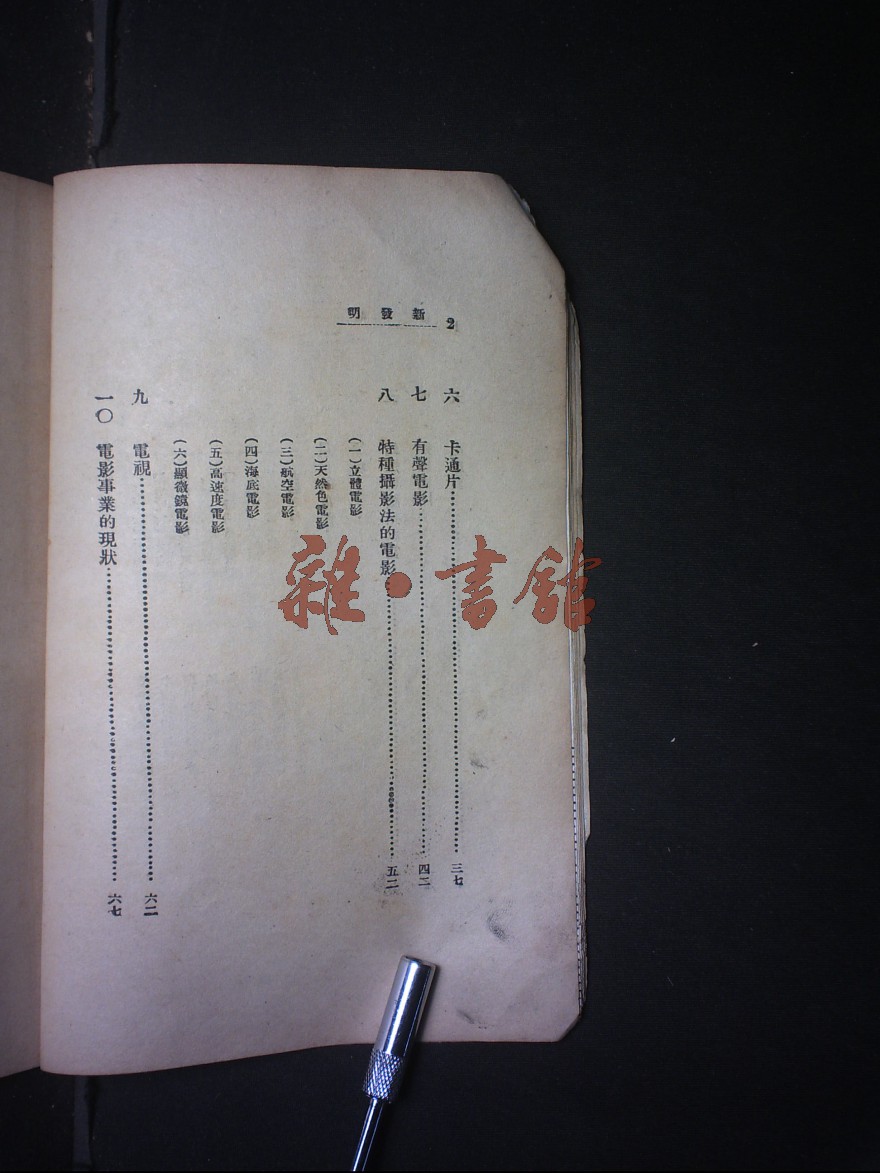 2
新發明
六 卡通片……三七
七 有聲電影……四二
八 特種攝影法的電影……五二
(一)立體電影
(二)天然色電影
(三)航空電影
(四)海底電影
(五)高速度電影
(六)顯微鏡電影
九 電視……六二
一〇 電影事業的現狀……六七
雜·書館